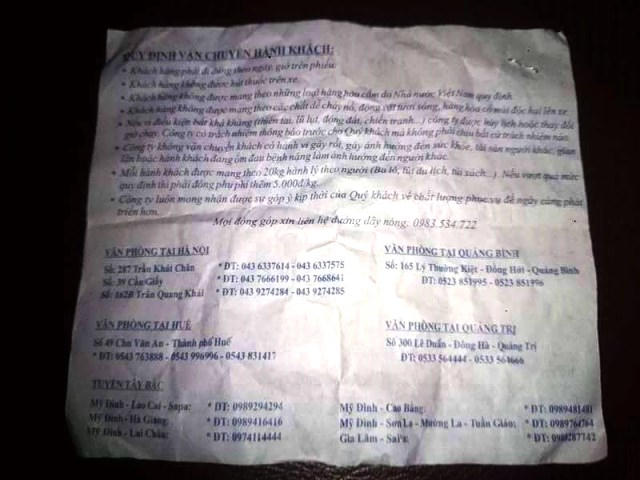 QUY ĐỊNH VẬN CHUYỂN HÀNH KHÁCH:
• Khách hàng phải đi đúng theo ngày, giờ trên phiếu.
• Khách hàng không được hút thuốc trên xe.
• Khách hàng không được mang theo những loại hàng hóa cấm do Nhà nước Việt Nam quy định.
• Khách hàng không được mang theo các chất dễ cháy nổ, động vật tươi sống, hàng hóa có mùi độc hại lên xe.
• Nếu vì điều kiện bất khả kháng (thiên tai, lũ lụt, động đất, chiến tranh...) công ty được hủy lịch hoặc thay đổi
giờ chạy. Công ty có trách nhiệm thông báo trước cho Quý khách mà không phải chịu bất cứ trách nhiệm nào.
• Công ty không vận chuyển khách có hành vi gây rối, gây ảnh hưởng đến sức khỏe, tài sản người khác, gian
lận hoặc hành khách đang ốm đau bệnh nặng làm ảnh hưởng đến người khác.
• Mỗi hành khách được mang theo 20kg hành lý theo người (Ba lô, túi du lịch, túi sách...). Nếu vượt quá mức
quy định thì phải đóng phụ phí thêm 5.000đ/kg.
• Công ty luôn mong nhận được sự góp ý kịp thời của Quý khách về chất lượng phục vụ để ngày càng phát
triển hơn.
Mọi đóng góp xin liên hệ đường dây nóng: 0983 534 722
VĂN PHÒNG TẠI HÀ NỘI
Số: 287 Trần Khát Chân * ĐT: 043 6337614 - 043 6337575
Số: 39 Cầu Giấy * ĐT: 043 7666199 - 043 7668641
Số: 162B Trần Quang Khải * ĐT: 043 9274284 - 043 9274285
VĂN PHÒNG TẠI QUẢNG BÌNH
Số: 165 Lý Thường Kiệt - Đồng Hới - Quảng Bình
ĐT: 0523 851995 - 0523 851996
VĂN PHÒNG TẠI HUẾ
Số 49 Chu Văn An - Thành phố Huế
* ĐT: 0543 763888 - 0543 996996 - 0543 831417
VĂN PHÒNG TẠI QUẢNG TRỊ
Số 300 Lê Duẩn - Đông Hà - Quảng Trị
ĐT: 0533 564444 - 0533 564666
TUYẾN TÂY BẮC
Mỹ Đình - Lao Cai - Sapa: * ĐT: 0989294294
Mỹ Đình - Hà Giang: * ĐT: 0989416416
Mỹ Đình - Lai Châu: * ĐT: 0974114444
Mỹ Đình - Cao Bằng: * ĐT: 0989481481
Mỹ Đình - Sơn La - Mường La - Tuần Giáo: * ĐT: 0989764764
Gia Lâm - Sapa: * ĐT: 0989287742